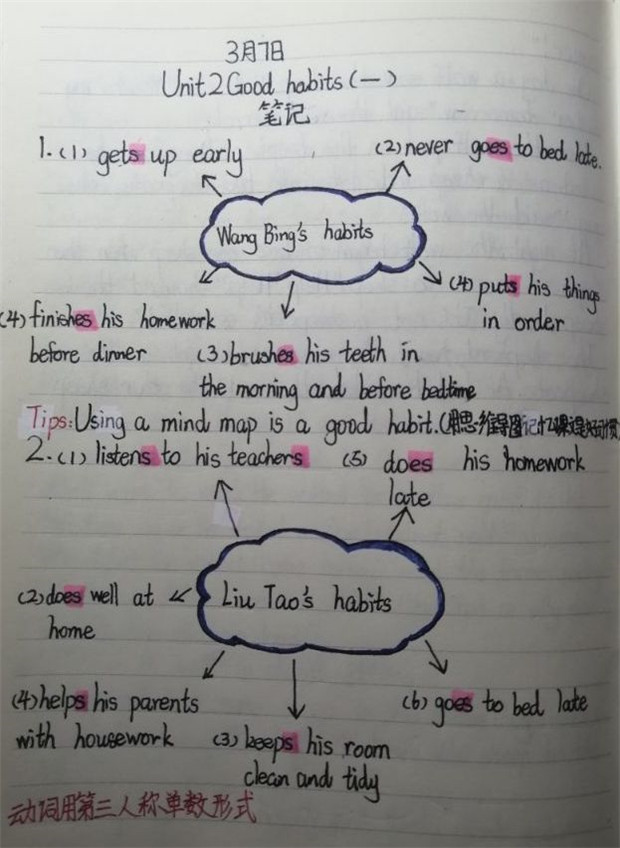 3月7日
Unit2 Good habits(一)
笔记
1.(1) gets up early
(2) never goes to bed late.
Wang Bing's habits
(4) finishes his homework
before dinner
(3) brushes his teeth in
the morning and before bedtime
(4) puts his things
in order
Tips: Using a mind map is a good habit.(用思维导图记忆课是好习惯)
2.(1) listens to his teachers
(5) does his homework
late
Liu Tao's habits
(2) does well at
home
(4) helps his parents
with housework
(3) keeps his room
clean and tidy
(6) goes to bed late
动词用第三人称单数形式